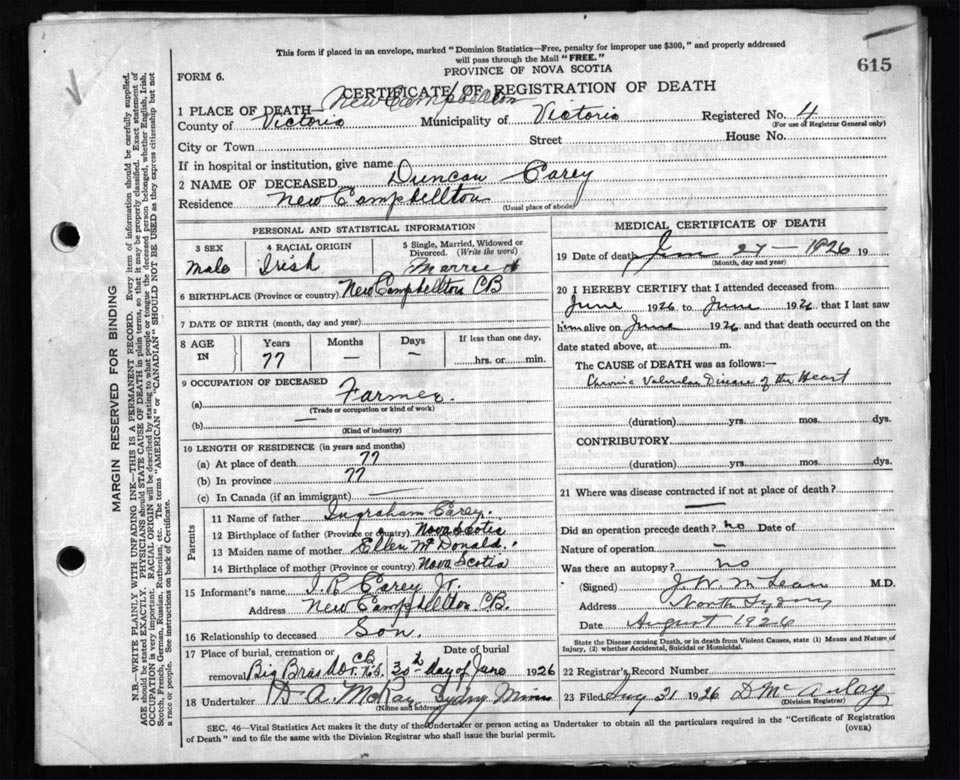 This form if placed in an envelope, marked "Dominion Statistics—Free, penalty for improper use $300," and properly addressed
will pass through the Mail "FREE."
615
FORM 6.
PROVINCE OF NOVA SCOTIA
CERTIFICATE OF REGISTRATION OF DEATH
1 PLACE OF DEATH— New Campbellton
County of Victoria Municipality of Victoria Registered No. 4
(For use of Registrar General only)
City or Town Street House No.
If in hospital or institution, give name
2 NAME OF DECEASED Duncan Carey
Residence New Campbellton
(Usual place of abode)
PERSONAL AND STATISTICAL INFORMATION
3 SEX Male
4 RACIAL ORIGIN Irish
5 Single, Married, Widowed or Divorced. (Write the word)
Married
6 BIRTHPLACE (Province or country) New Campbellton CB
7 DATE OF BIRTH (month, day and year)
8 AGE IN Years Months Days If less than one day,
77 — — hrs. or min.
9 OCCUPATION OF DECEASED
(a) Farmer.
(Trade or occupation or kind of work)
(b)
(Kind of industry)
10 LENGTH OF RESIDENCE (in years and months)
(a) At place of death 77
(b) In province 77
(c) In Canada (if an immigrant)
Parents
11 Name of father Ingraham Carey.
12 Birthplace of father (Province or country) Nova Scotia
13 Maiden name of mother Ellen McDonald.
14 Birthplace of mother (Province or country) Nova Scotia
15 Informant's name J. R. Carey Jr.
Address New Campbellton CB.
16 Relationship to deceased Son.
17 Place of burial, cremation or removal Date of burial
Big Bras D'Or CB 30th day of June 1926
18 Undertaker A. McKay, Sydney Mines
(Name and address)
MEDICAL CERTIFICATE OF DEATH
19 Date of death June 27 — 1926 19
(Month, day and year)
20 I HEREBY CERTIFY that I attended deceased from
June 1926 to June 1926 that I last saw
him alive on June 1926 and that death occurred on the
date stated above, at m.
The CAUSE of DEATH was as follows:—
Chronic Valvular Disease of the Heart
(duration) yrs. mos. dys.
CONTRIBUTORY
(duration) yrs. mos. dys.
21 Where was disease contracted if not at place of death?
—
Did an operation precede death? no Date of
Nature of operation —
Was there an autopsy? no
(Signed) J. W. McLean M.D.
Address North Sydney
Date August 1926
State the Disease causing Death, or in death from Violent Causes, state (1) Means and Nature of
Injury, (2) whether Accidental, Suicidal or Homicidal.
22 Registrar's Record Number
23 Filed Aug 21 1926 D McAulay
(Division Registrar)
SEC. 46—Vital Statistics Act makes it the duty of the Undertaker or person acting as Undertaker to obtain all the particulars required in the "Certificate of Registration
of Death" and to file the same with the Division Registrar who shall issue the burial permit.
(OVER)
MARGIN RESERVED FOR BINDING
N.B.—WRITE PLAINLY WITH UNFADING INK—THIS IS A PERMANENT RECORD. Every item of information should be carefully supplied.
AGE should be stated EXACTLY. PHYSICIANS should STATE CAUSE OF DEATH in plain terms, so that it may be properly classified. Exact statement of
OCCUPATION is very important. RACIAL ORIGIN will be described by stating to what people or tongue the deceased person belonged, whether English, Irish,
Scotch, French, German, Russian, Ruthenian, etc. The terms "AMERICAN" or "CANADIAN" SHOULD NOT BE USED as they express citizenship but not
a race or people. See instructions on back of Certificate.